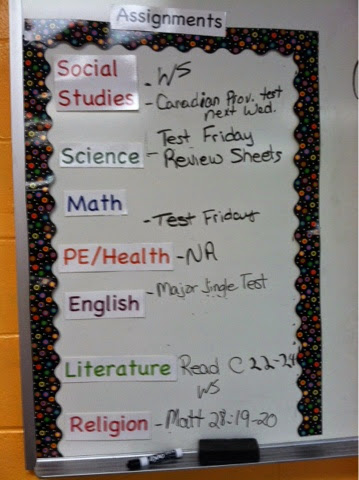 Assignments
Social Studies - WS
- Canadian Prov. test
next Wed.
Test Friday
Science - Review Sheets
Math
- Test Friday
PE/Health - NA
English - Major Jingle Test
Literature Read C 22-24
WS
Religion - Matt 28:19-20